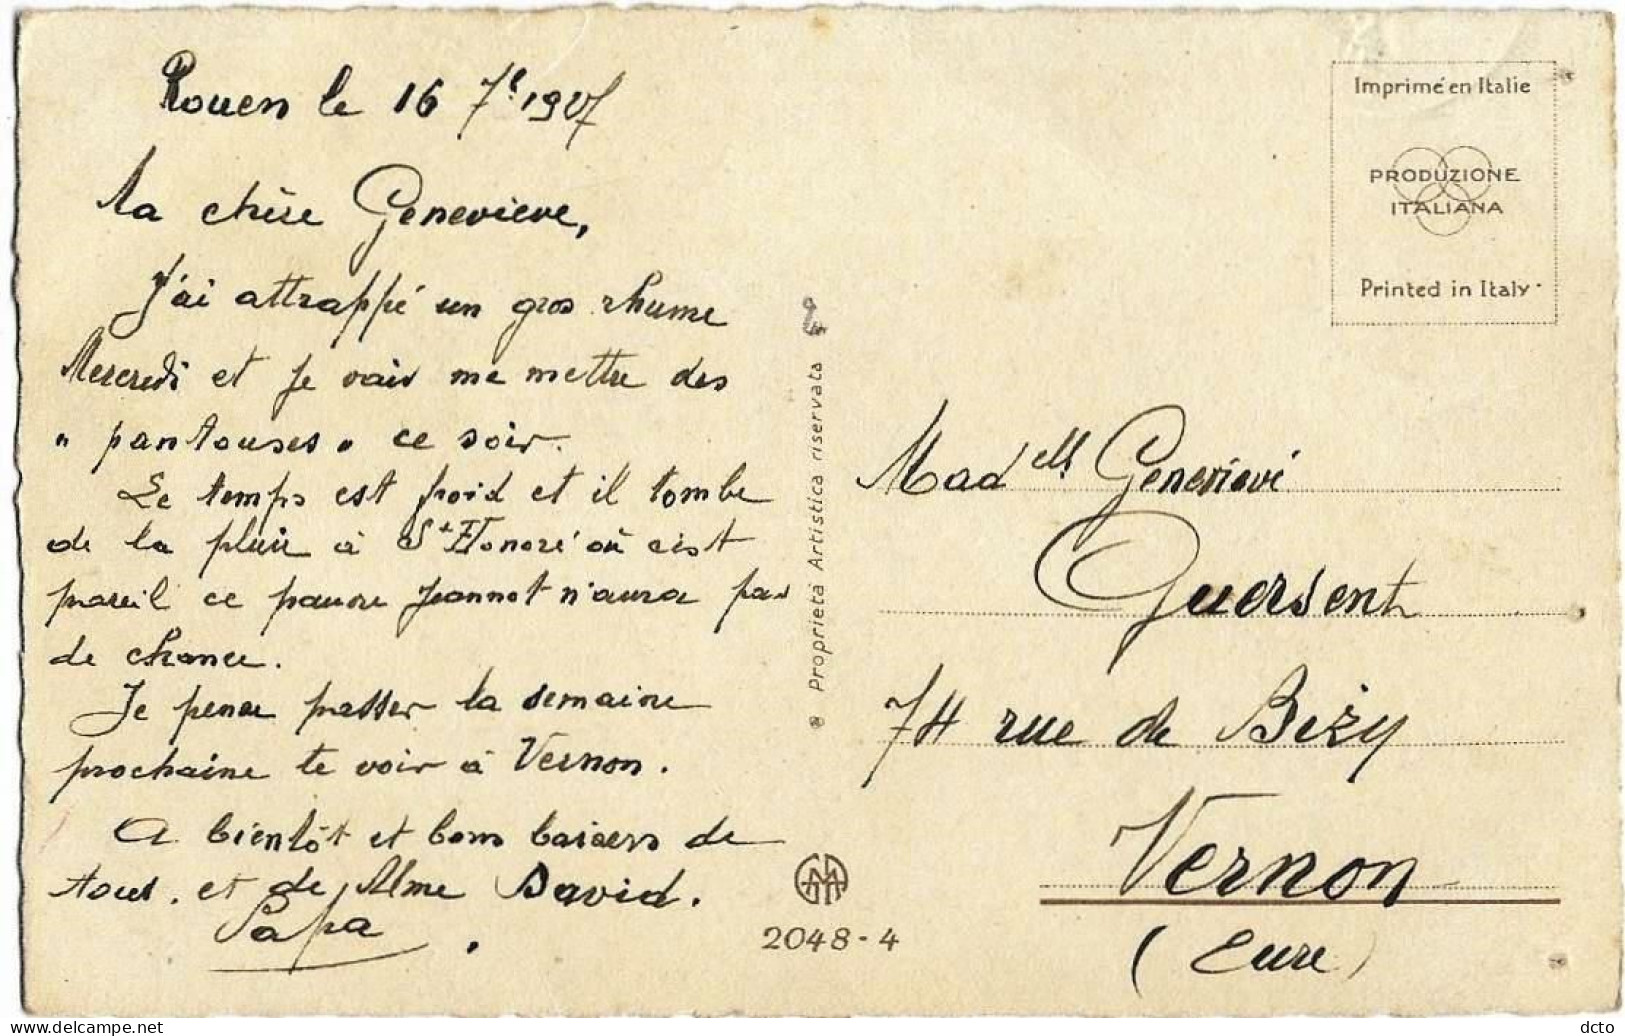 Rouen le 16 7e 1927
Ma chère Geneviève,
J'ai attrappé un gros rhume
Mercredi et je vais me mettre des
" pantouses " ce soir.
Le temps est froid et il tombe
de la pluie à St Honoré où c'est
pareil ce pauvre Jeannot n'aura pas
de chance.
Je pense passer la semaine
prochaine te voir à Vernon.
A bientôt et bons baisers de
tous. et de Mme David.
Papa
Proprietà Artistica riservata
2048-4
Imprimé en Italie
PRODUZIONE
ITALIANA
Printed in Italy
Madelle Geneviève
Guersent
74 rue de Bizy
Vernon
(Eure)
www.delcampe.net
dcto